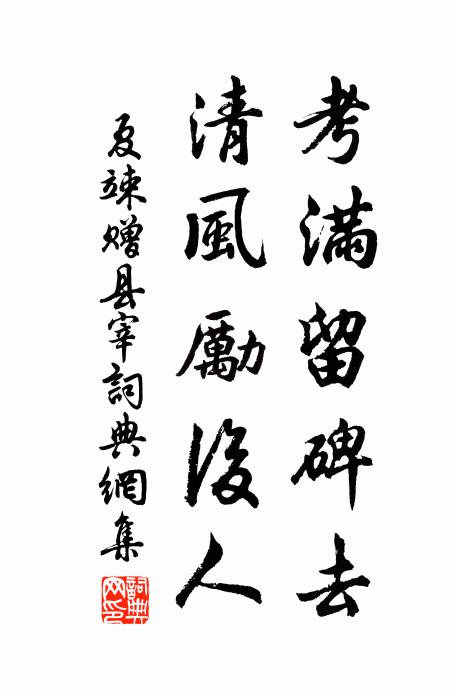 考滿留碑去
清風勵後人
夏竦赠县宰詞典網集
詞典網印